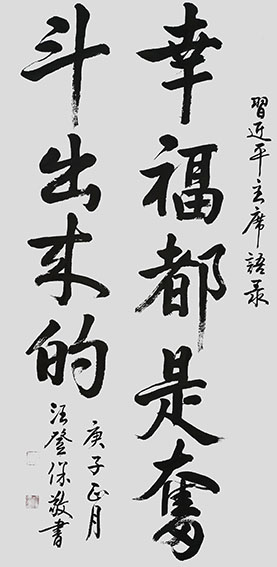 習近平主席語录
幸福都是奮
斗出来的
庚子正月
汪登保敬書